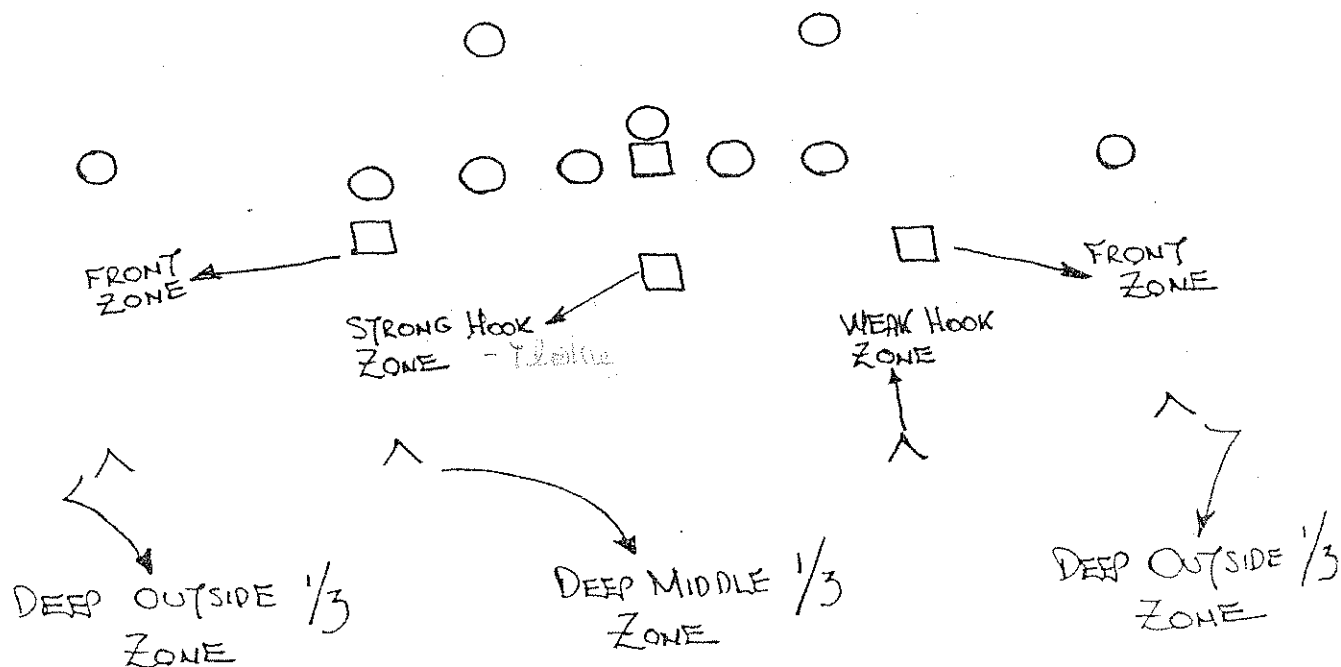 FRONT
ZONE
FRONT
ZONE
STRONG HOOK
ZONE -
WEAK HOOK
ZONE
DEEP OUTSIDE 1/3
ZONE
DEEP MIDDLE 1/3
ZONE
DEEP OUTSIDE 1/3
ZONE